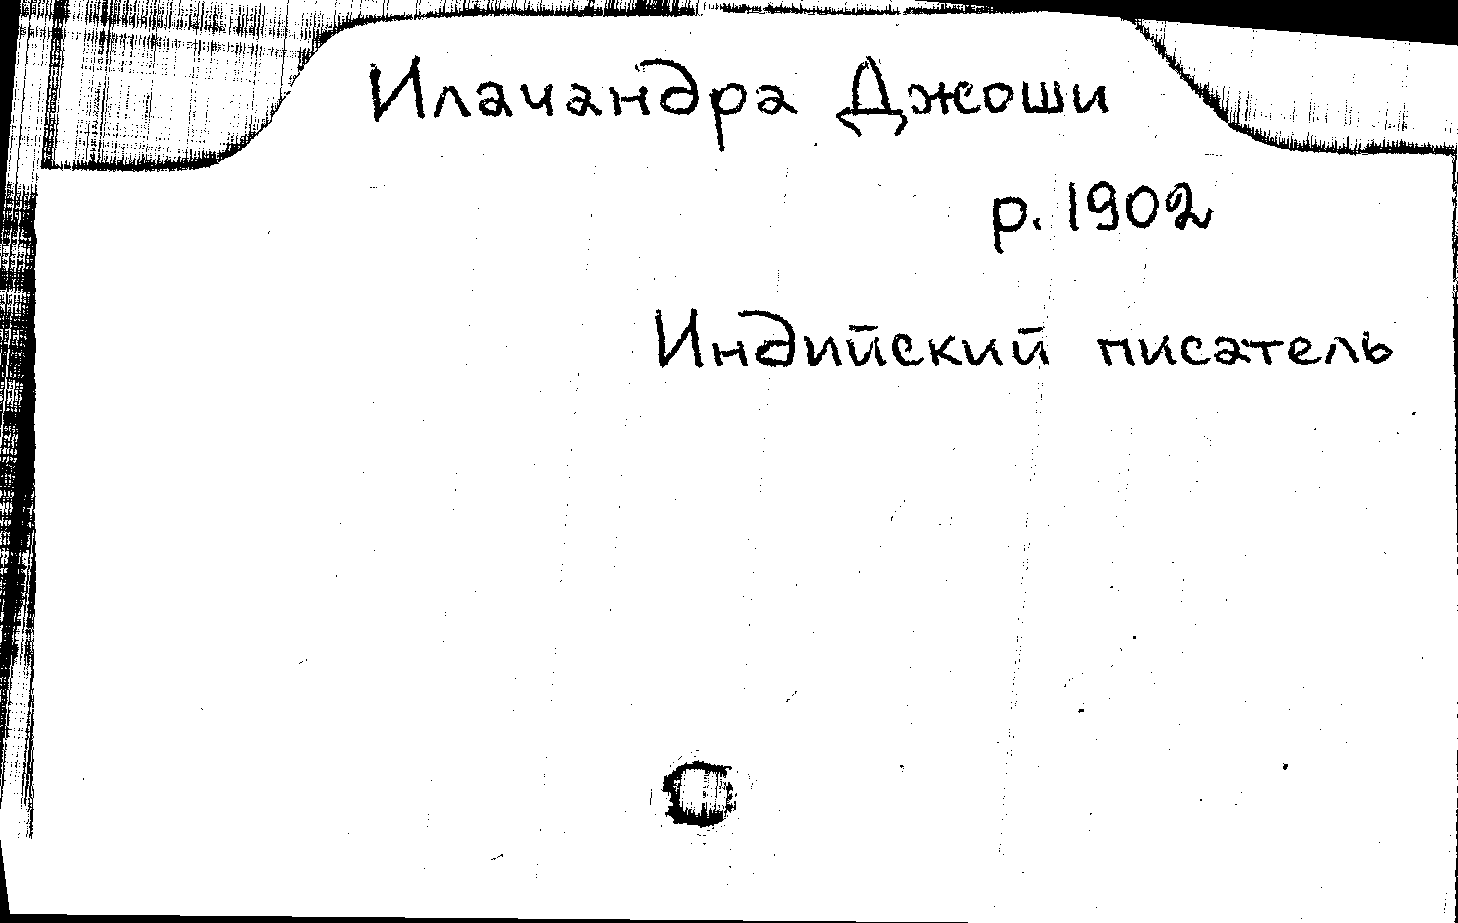 Илачандра Джоши
р. 1902
Индийский писатель